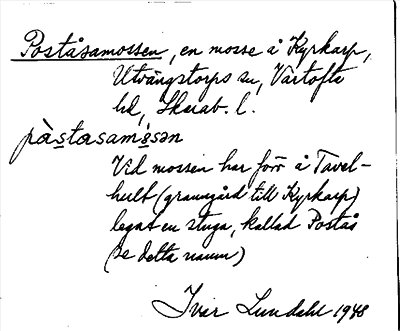 Poståsamossen, en mosse å Kyrkarp,
Utvängstorps sn, Vartofta
hd, Skarab. l.
pàstasamåsən
Vid mossen har förr å Tavel-
hult (granngård till Kyrkarp)
legat en stuga, kallad Postås
(se detta namn)
Ivar Lundahl 1948